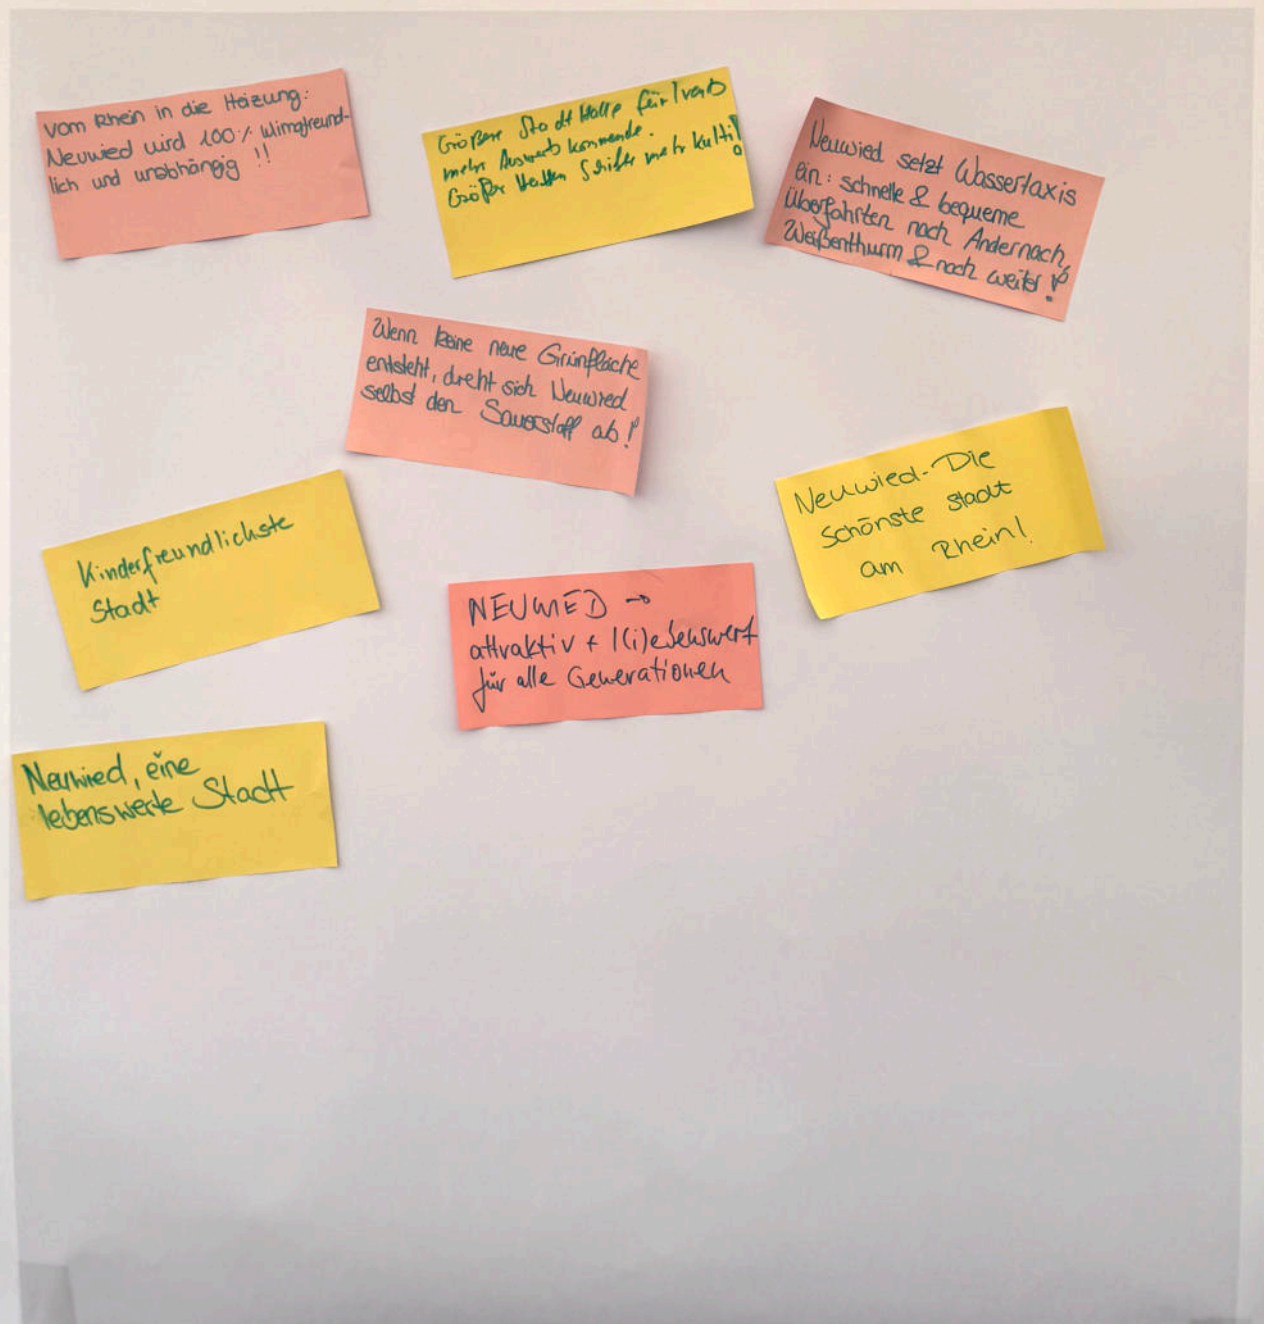 Vom Rhein in die Heizung:
Neuwied wird 100% klimafreund-
lich und unabhängig !!
Größere Stadt Halle für
mehr Auswerts kommende.
Größe Hallen mehr Kult!
Neuwied setzt Wassertaxis
ein: schnelle & bequeme
Überfahrten nach Andernach,
Weißenthurm & noch weiter!
Wenn keine neue Grünfläche
entsteht, dreht sich Neuwied
selbst den Sauerstoff ab!
Neuwied-Die
schönste stadt
am Rhein!
Kinderfreundlichste
Stadt
NEUWIED →
attraktiv + l(i)ebenswert
für alle Generationen
Neuwied, eine
lebenswerte Stadt